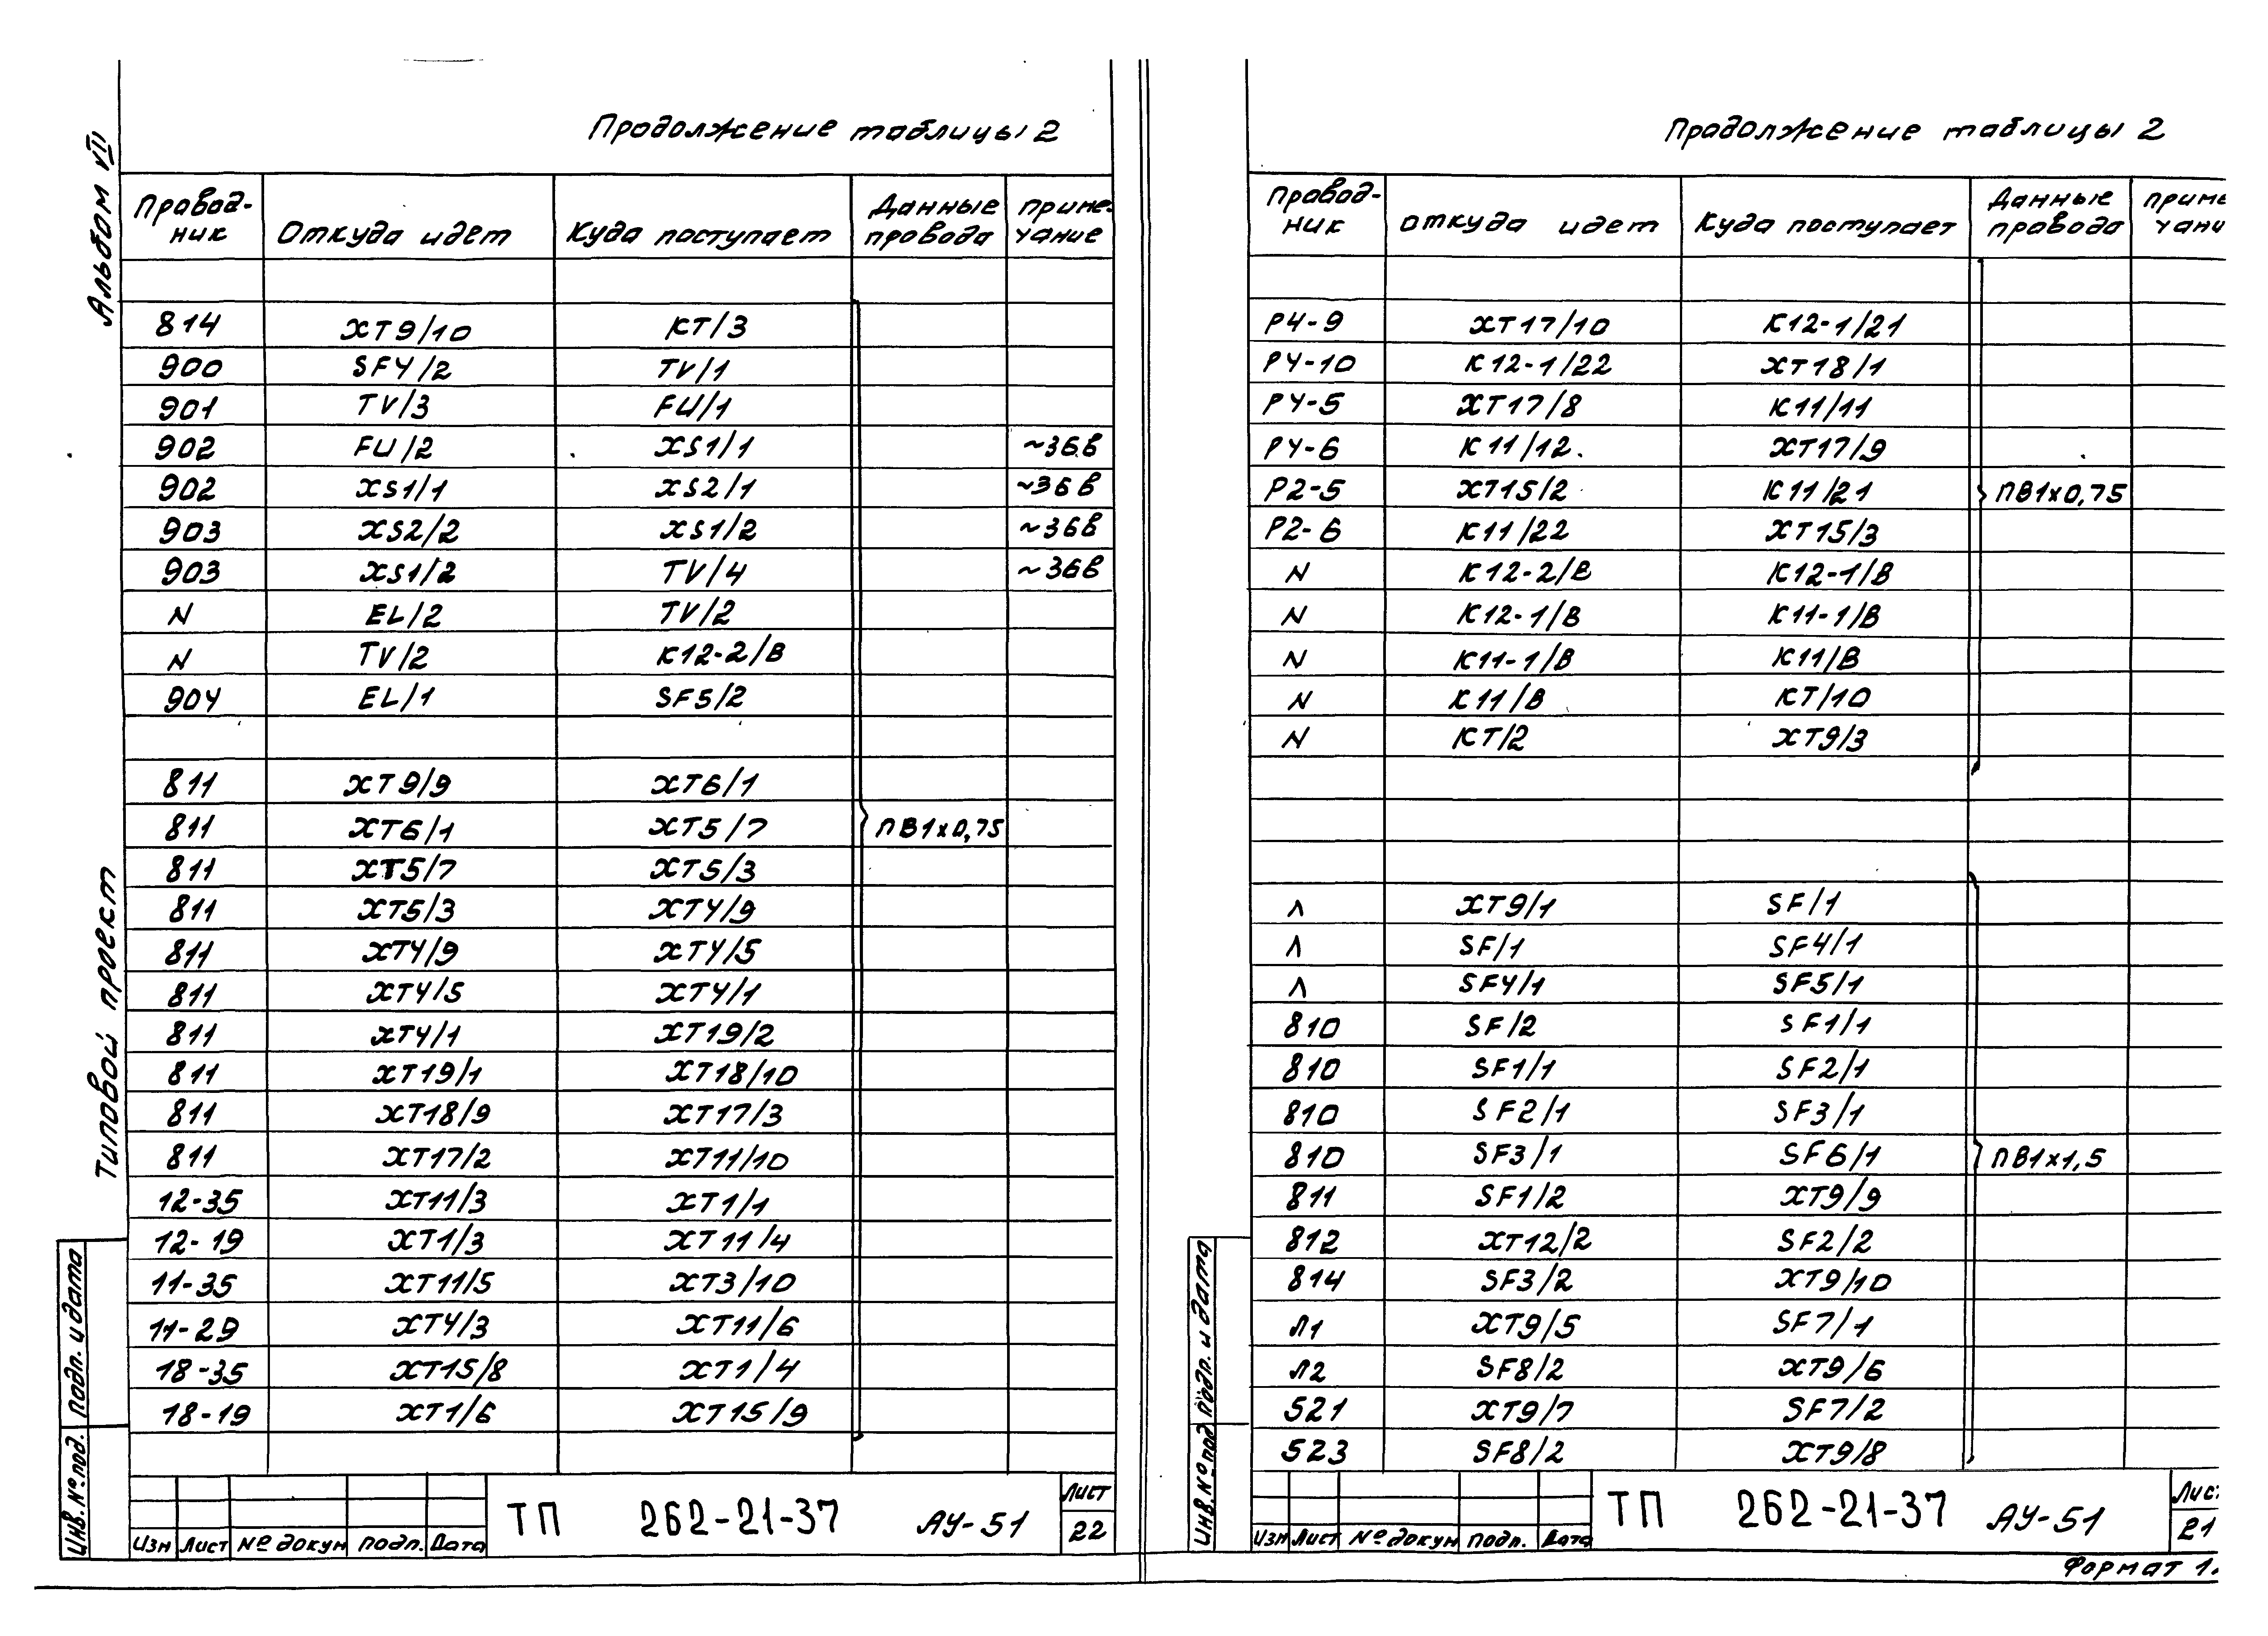 Альбом VII
Типовой проект
Продолжение таблицы 2
Провод-ник Откуда идет Куда поступает Данные провода Приме-чание
814 XT9/10 KT/3
900 SF4/2 TV/1
901 TV/3 FU/1
902 FU/2 XS1/1 ~36В
902 XS1/1 XS2/1 ~36В
903 XS2/2 XS1/2 ~36В
903 XS1/2 TV/4 ~36В
N EL/2 TV/2
N TV/2 K12-2/B
904 EL/1 SF5/2
811 XT9/9 XT6/1
811 XT6/1 XT5/7 ПВ1х0,75
811 XT5/7 XT5/3
811 XT5/3 XT4/9
811 XT4/9 XT4/5
811 XT4/5 XT4/1
811 XT4/1 XT19/2
811 XT19/1 XT18/10
811 XT18/9 XT17/3
811 XT17/2 XT11/10
12-35 XT11/3 XT1/1
12-19 XT1/3 XT11/4
11-35 XT11/5 XT3/10
11-29 XT4/3 XT11/6
18-35 XT15/8 XT1/4
18-19 XT1/6 XT15/9
Инв. № под. Подп. и дата
Изм Лист № докум подп. Дата
ТП 262-21-37 АУ-51
Лист
22
Продолжение таблицы 2
Провод-ник Откуда идет Куда поступает Данные провода приме чани
P4-9 XT17/10 K12-1/21
P4-10 K12-1/22 XT18/1
P4-5 XT17/8 K11/11
P4-6 K11/12. XT17/9
P2-5 XT15/2 K11/21 ПВ1х0,75
P2-6 K11/22 XT15/3
N K12-2/B K12-1/B
N K12-1/B K11-1/B
N K11-1/B K11/B
N K11/B KT/10
N KT/2 XT9/3
Л XT9/1 SF/1
Л SF/1 SF4/1
Л SF4/1 SF5/1
810 SF/2 SF1/1
810 SF1/1 SF2/1
810 SF2/1 SF3/1
810 SF3/1 SF6/1 ПВ1х1,5
811 SF1/2 XT9/9
812 XT12/2 SF2/2
814 SF3/2 XT9/10
Л1 XT9/5 SF7/1
Л2 SF8/2 XT9/6
521 XT9/7 SF7/2
523 SF8/2 XT9/8
Инв. № под Подп. и дата
Изм Лист № докум подп. Дата
ТП 262-21-37 АУ-51
Лис
21
Формат 1